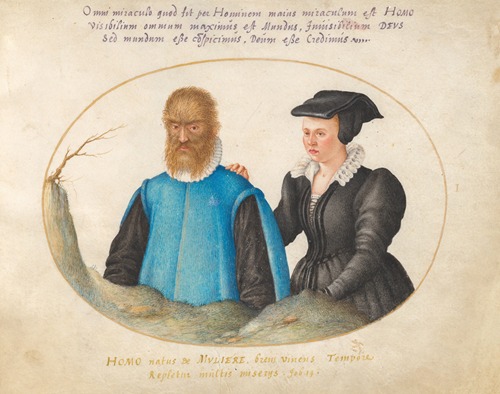 Omni miraculo quod fit per Hominem maius miraculum est HOMO
Visibilium omnium maximus est Mundus, Inuisibilium DEUS
Sed mundum esse cōspicimus, Deum esse Credimus
HOMO natus de MVLIERE, breui viuens Tempore
Repletur multis miserys. Job 14.